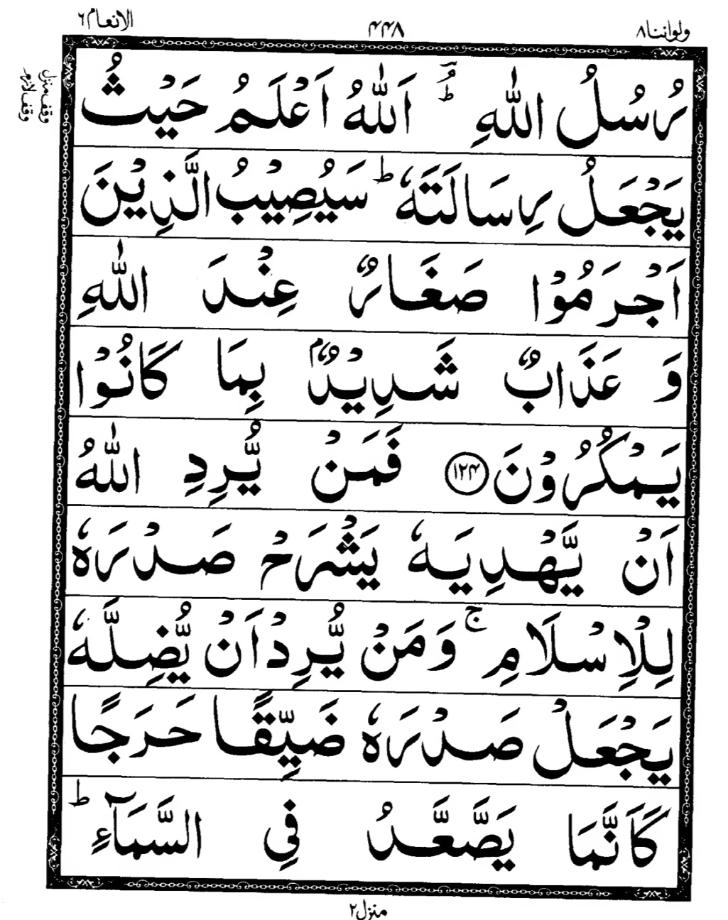 ولواننا۸ ۴۴۸ الانعام۶
وقف منزل
وقف لازم
رُسُلُ اللّٰهِ ؕۘ اَللّٰهُ اَعْلَمُ حَیْثُ
یَجْعَلُ رِسَالَتَهٗ ؕ سَیُصِیْبُ الَّذِیْنَ
اَجْرَمُوْا صَغَارٌ عِنْدَ اللّٰهِ
وَ عَذَابٌ شَدِیْدٌۢ بِمَا كَانُوْا
یَمْكُرُوْنَ ﴿۱۲۴﴾ فَمَنْ یُّرِدِ اللّٰهُ
اَنْ یَّهْدِیَهٗ یَشْرَحْ صَدْرَهٗ
لِلْاِسْلَامِ ۚ وَمَنْ یُّرِدْ اَنْ یُّضِلَّهٗ
یَجْعَلْ صَدْرَهٗ ضَیِّقًا حَرَجًا
كَاَنَّمَا یَصَّعَّدُ فِی السَّمَآءِ ؕ
منزل۲